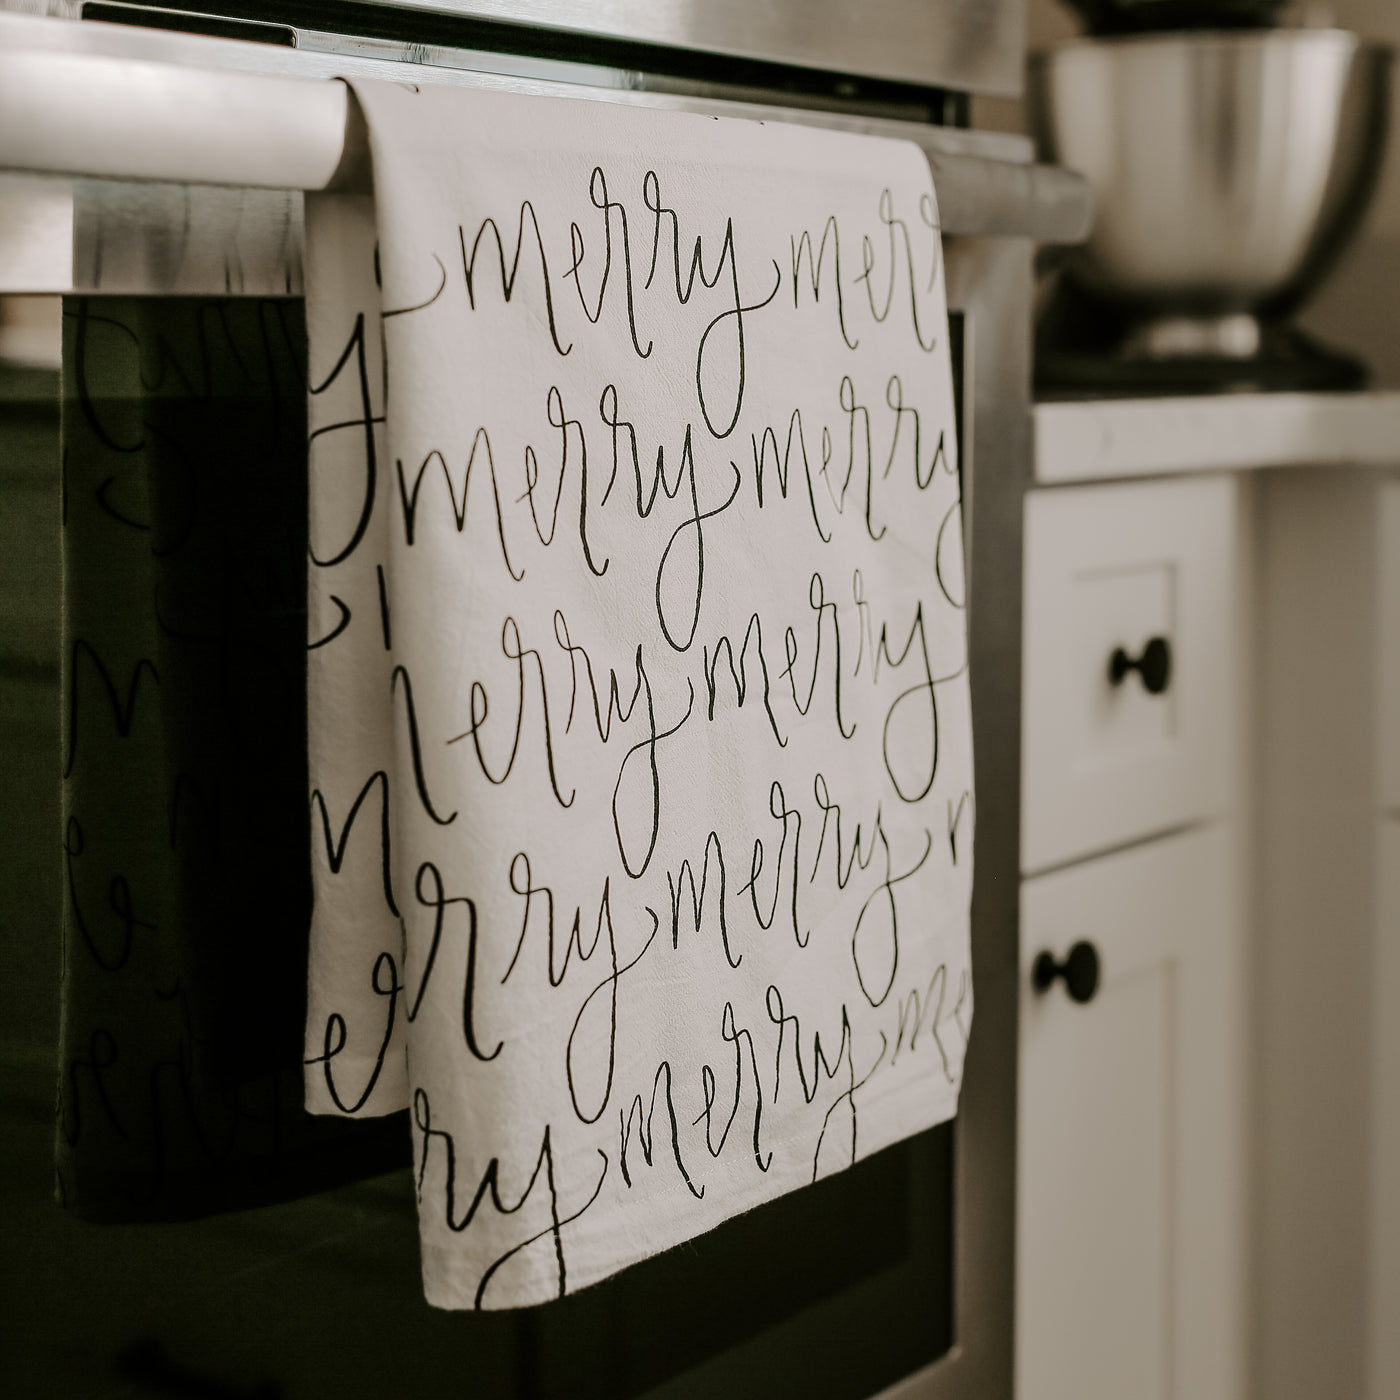 merry merr
merry merry
merry merry
rry merry m
ry merry me